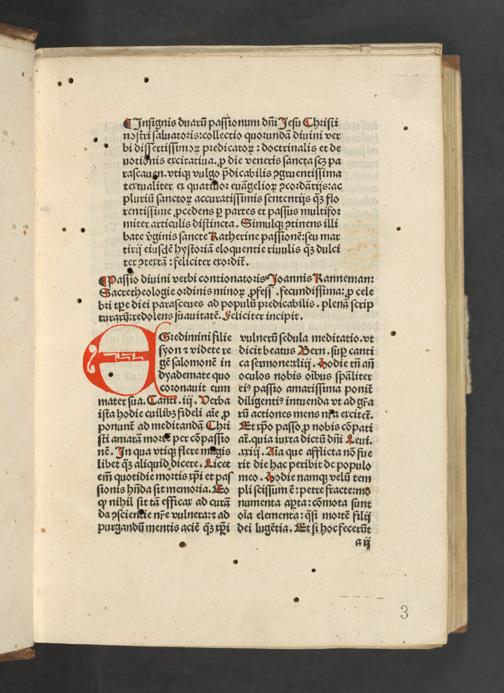 ¶Insignis duarū passionum dn̄i Jesu Christi
nostri saluatoris: collectio quorundā diuini ver
bi dissertissimoꝝ predicatoꝝ: doctrinalis et de
uotionis excitatiua. ꝓ die veneris sancta seu pa
rasceuan. vtiqꝫ vulgo p̄dicabilis ꝯgruentissima
textualiter ex quattuor euāgelioꝝ ꝯcordātijs: ac
pluriū sanctoꝝ accuratissimis sententijs qꝫ flo
rentissime ꝓcedens ꝑ partes et passus multifor
miter articulis distincta. Simulqꝫ ꝯtinens illi
bate v̓ginis sancte Katherine passionē: seu mar
tirij eiusdē hystoriā eloquentie riuulis qꝫ dulci
ter ꝯtextā: feliciter exordit̄.
¶Passio diuini verbi contionatoris Joannis Kanneman:
Sacretheologie ordinis minoꝝ ꝓfess̄. fecundissima: ꝓ cele
bri tꝑe diei parasceues ad populū predicabilis. plenā scrip
turarū: redolens suauitatē. Feliciter incipit.
EGredimini filie
syon ⁊ videte re
gē salomonē in
dyademate quo
coronauit eum
mater sua. Canti. iij. Verba
ista hodie cuilibꝫ fideli aīe ꝓ
ponunt̄ ad meditandā Chri
sti amarā mortē per cōpassio
nē. In qua vtiqꝫ flere magis
libet qꝫ aliquid dicere. Licet
em̄ quotidie mortis xp̄i et pas
sionis hn̄da sit memoria. Eo
qꝫ nihil sit tā efficax ad curā
da ꝯscientie nr̄e vulnera: ⁊ ad
purgandū mentis aciē qꝫ xp̄i
vulnerū sedula meditatio. vt
dicit beatus Bern. suꝑ canti
ca sermone: xliij. Hodie tn̄ an̄
oculos nobis oībus spāliter
ei᷒ passio amarissima ponit̄
diligenti᷒ intuenda vt ad gr̄a
rū actiones mens nr̄a excitet̄.
Et xp̄o passo ꝓ nobis cōpati
at̄. quia iuxta dictū dn̄i Leui.
.xxiij. Aīa que afflicta nō fue
rit die hac peribit de populo
meo. Hodie namqꝫ velū tem
pli scissum ē: petre fracte: mo
numenta aꝑta: cōmota sunt
oīa elementa: qꝫsi mortē filij
dei lugētia. Et si hoc fecerūt
a ij
3